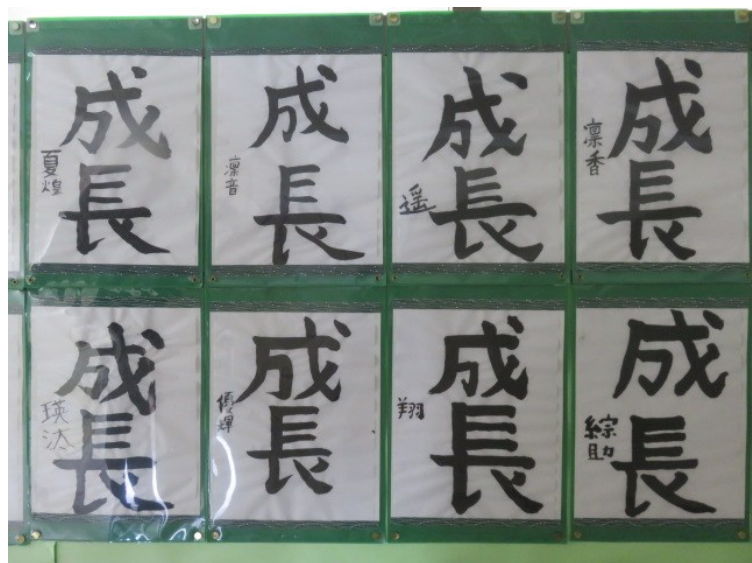 成長
夏煌
成長
凛音
成長
遥
成長
凛香
成長
瑛汰
成長
優輝
成長
翔
成長
綜助